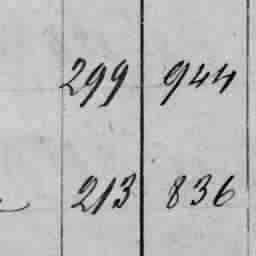 299 944
213 836